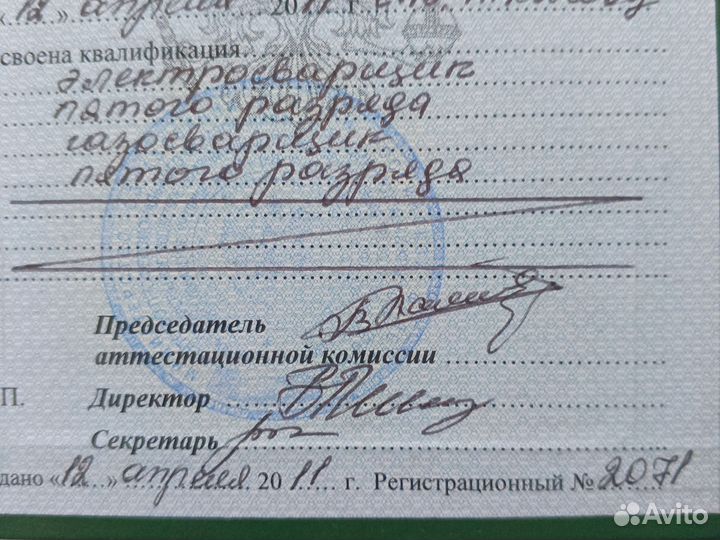 «12» апреля 2011 г.
своена квалификация
электросварщик
пятого разряда
газосварщик
пятого разряда
Председатель
аттестационной комиссии
П. Директор
Секретарь
дано «12» апреля 2011 г. Регистрационный № 2071
Avito